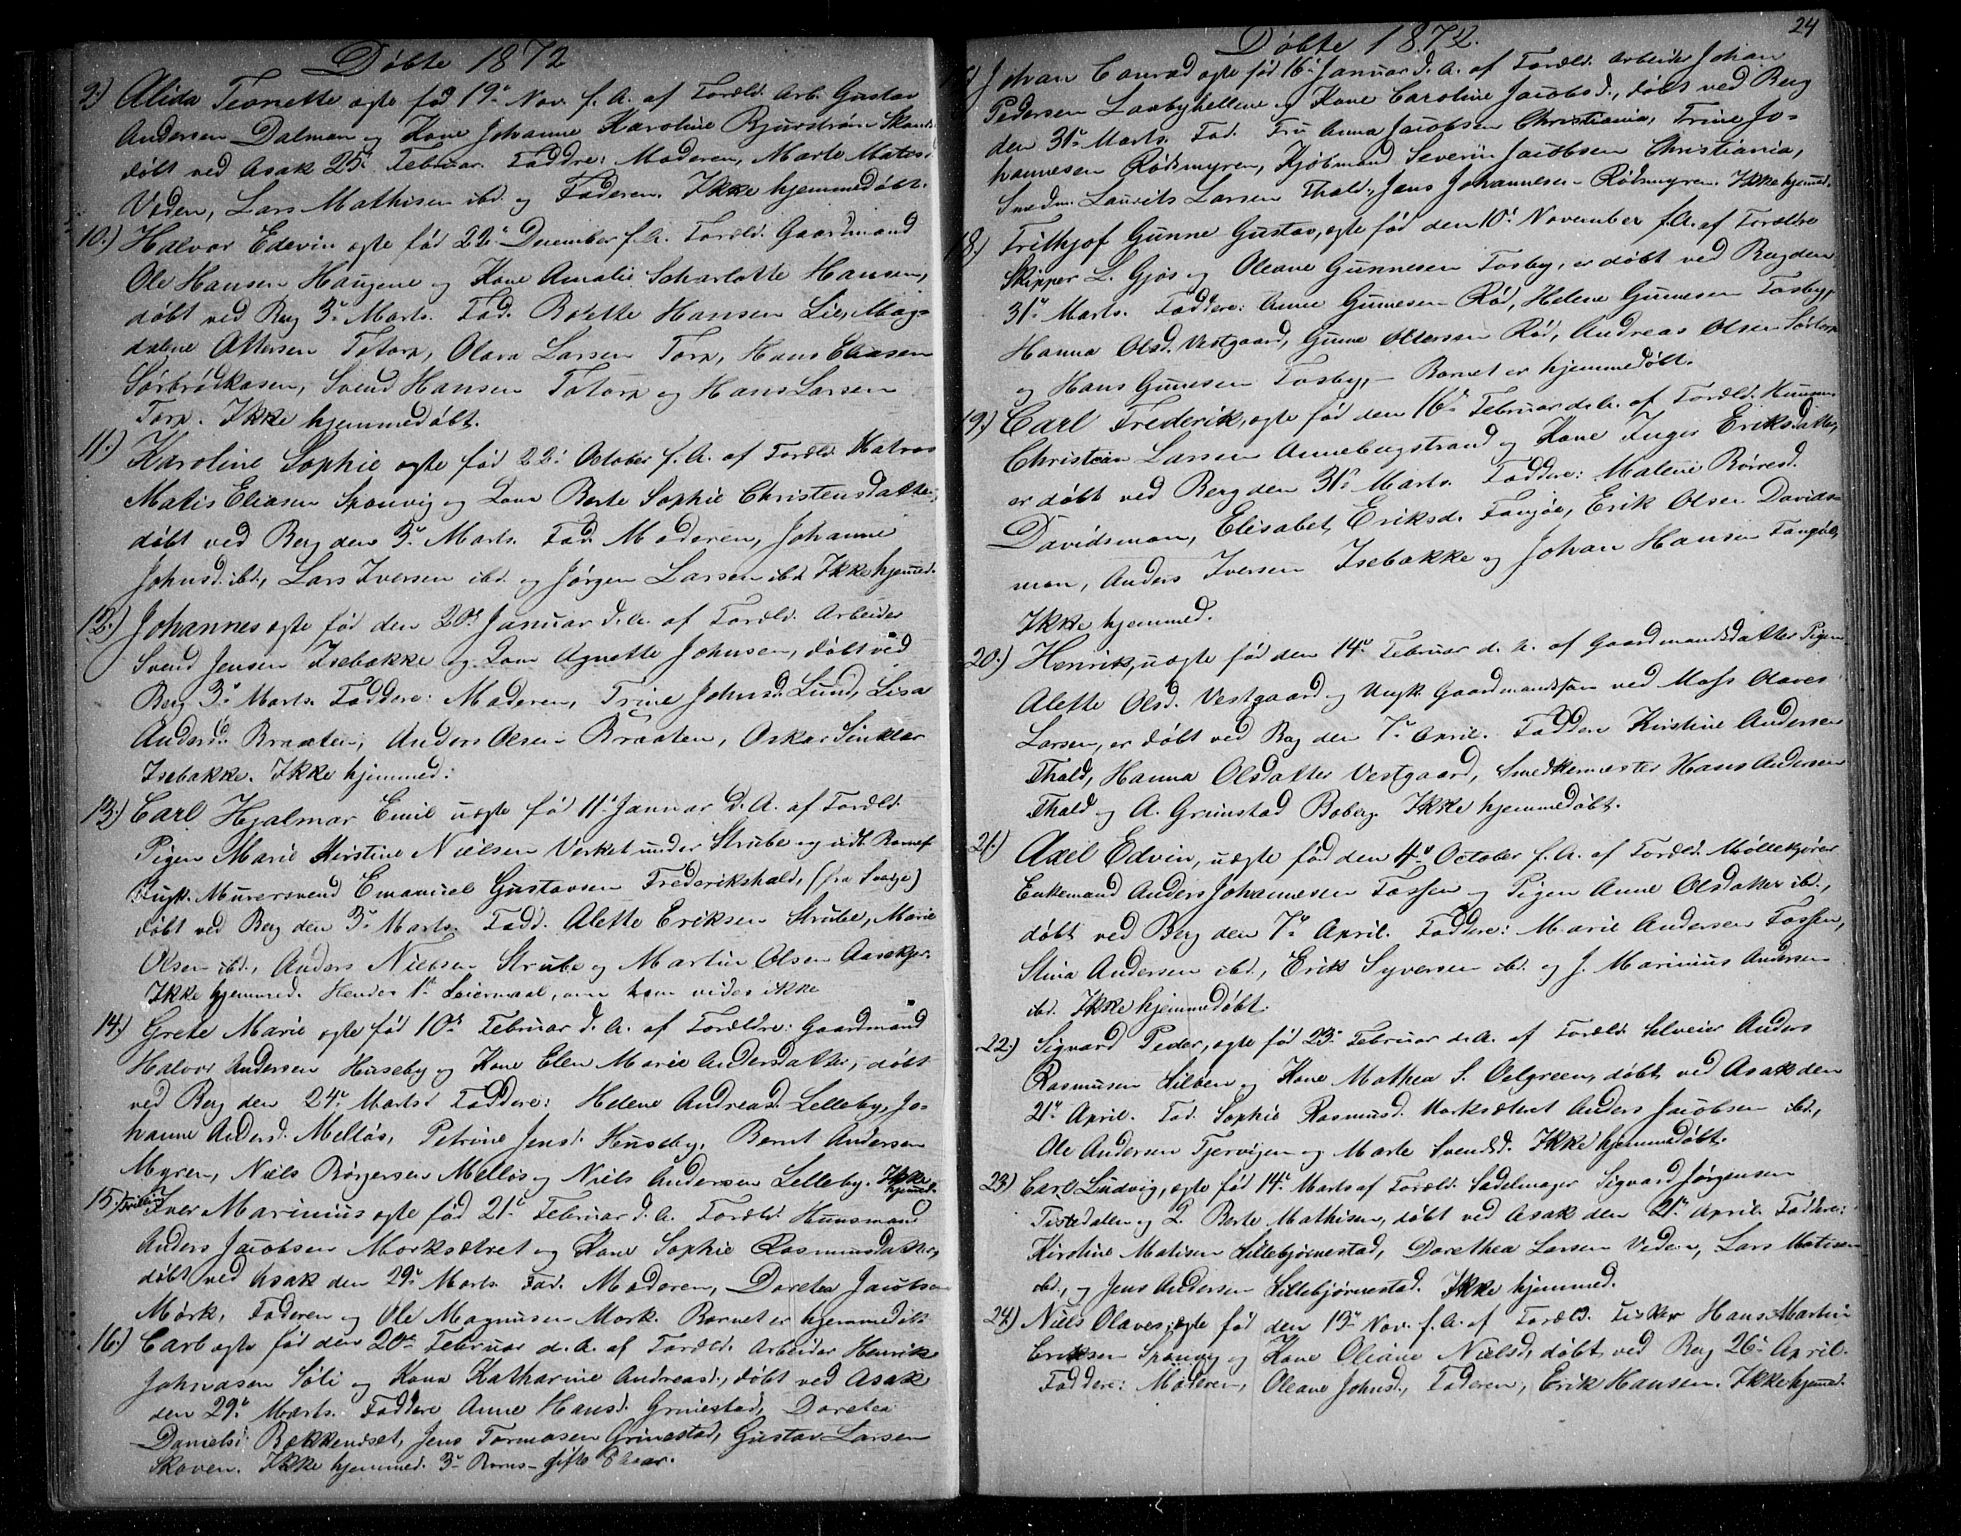 Døbte 1872
9.) Alida Teonette ægte fød 19de Nov. f. A. af Foræld. Arb. Gustav
Andersen Dalman og Kone Johanne Karoline Bjurstrøm
døbt ved Asak 25de Februar. Faddre: Moderen, Marte Matis.
Veden, Lars Mathisen ibd. og Faderen. Ikke hjemmedøbt.
10.) Halvor Edevin ægte fød 22de December f. A. Foræld. Gaardmand
Ole Hansen Haugene og Kone Amalie Scharlotte Hansen,
døbt ved Berg 3de Marts. Fad. Bolette Hansen Lie, Mag-
dalene Ottersen Totorp, Olava Larsen Torp, Hans Eliasen
Sørbrødkasen, Svend Hansen Totorp og Hans Larsen
Torp. Ikke hjemmedøbt.
11.) Karoline Sophie ægte fød 22de October f. A. af Foræld. Matros
Matis Eliasen Sponvig og Kone Berte Sophie Christensdatter,
døbt ved Berg den 3de Marts. Fad. Moderen, Johanne
Johnsd. ibd., Lars Iversen ibd. og Jørgen Larsen ibd. Ikke hjemmed.
12.) Johannes ægte fød den 20de Januar d. A. af Foræld. Arbeider
Svend Jensen Isebakke og Kone Agnette Johnsen, døbt ved
Berg 3de Marts. Faddere: Moderen, Trine Johnsd. Lund, Lisa
Andersd. Braaten, Anders Olsen Braaten, Oskar Sinklar
Isebakke. Ikke hjemmed:
13.) Carl Hjalmar Emil uægte fød 11te Januar d. A. af Foræld.
Pigen Marie Kirstine Nielsen Værket under Strube og udl. Barnef
Ungk. Mursvend Emanuel Gustavsen Frederikshald, (fra Sverige)
døbt ved Berg den 3de Marts. Fadd. Alette Eriksen Strube, Marie
Olsen ibd., Anders Nielsen Strube og Martin Olsen
Ikke hjemmed. Hendes 1ste Leiermaal, om ham vides ikke
14.) Grete Marie ægte fød 10de Februar d. A. af Forældre: Gaardmand
Halvor Andersen Huseby og Kone Elen Marie Andersdatter, døbt
ved Berg den 24de Marts. Faddere: Helene Andreasd. Lelleby, Jo-
hanne Andersd. Melløs, Petrine Jensd. Huseby, Bernt Andersen
Myren, Niels Børgersen Melløs og Niels Andersen Lelleby. Ikke
hjemmd.
15.) Iver Marinius ægte fød 21de Februar d. A. Foræld. Huusmand
Anders Jacobsen Morksætret og Kone Sophie Rasmusdatter,
døbt ved Asak den 29de Marts. Fad. Moderen, Doretea Jacobsen
Mørk, Faderen og Ole Magnusen Mørk. Barnet er hjemmedøbt
16.) Carl ægte fød den 20de Februar d. A. af Foræld. Arbeider Henrik
Johnasen Søli og Kone Katharine Andreasd., døbt ved Asak
den 29de Marts. Faddere Anne Hansd. Grinestad, Doretea
Danielsd. Bækkenæset, Jens Tormosen Grinestad, Gustav Larsen
Skoven. Ikke hjemmed. 3de Barns gifte 8 Aar.
24
Døbte 1872.
Johan Conrad ægte fød 16de Januar d. A. af Foræld. Arbeider Johan
Pedersen Laxbyhellene og Kone Caroline Jacobsd., døbt ved Berg
den 31te Marts. Fad. Fru Anna Jacobsen Christiania, Trine Jo-
hannesen Rødsmyren, Kjøbmand Severin Jacobsen Christiania,
Smedm. Laurits Larsen Thald., Jens Johannesen Rødsmyren. Ikke hjemd.
18.) Frithjof Gunne Gustav, ægte fød den 10de November f. A. af Forældre
Skipper L. Gjøs og Oleane Gunnesen Fosby, er døbt ved Berg den
31te Marts. Faddere: Anne Gunnesen Rød, Helene Gunnesen Fosby,
Hanna Olsd. Vestgaard, Gunne Ottersen Rød, Andreas Olsen Sørtorp
og Hans Gunnesen Fosby, Barnet er hjemmedøbt.
19.) Carl Frederik, ægte fød den 16de Februar d. A. af Foræld. Huusm.
Christian Larsen Annebergstrand og Kone Inger Eriksdatter,
er døbt ved Berg den 31te Marts. Faddere: Malene Børresd.
Davidsmon, Elisabet Eriksd. Fangøe, Erik Olsen Davids-
mon, Anders Iversen Isebakke og Johan Hansen
Ikke hjemmed.
20.) Henrik, uægte fød den 14de Februar d. A. af Gaardmandsdatter Pigen
Alette Olsd. Vestgaard og Ungk. Gaardmandssøn ved Moss Olaves
Larsen, er døbt ved Berg den 7de April. Faddere Kirstine Andersen
Thald, Hanna Olsdatter Vestgaard, Smedkemester Hans Andersen
Thald og A. Grimstad Boberg. Ikke hjemmedøbt.
21.) Axel Edvin, uægte fød den 4de October f. A. af Foræld. Møllekjører
Enkemand Anders Johannesen Fossen og Pigen Anne Olsdatter ibd.,
døbt ved Berg den 7de April. Faddere: Marie Andersen Fossen,
Stina Andersen ibd., Erik Syversen ibd. og J. Marinius Andersen
ibd. Ikke hjemmedøbt.
22.) Sigvard Peder, ægte fød 23de Februar d. A. af Foræld. Selveier Anders
Rasmusen Lilbøn og Kone Mathea S. Oelgreen, døbt ved Asak den
21de April. Fad. Sophie Rasmusd. Morksætret Anders Jacobsen ibd.,
Ole Andersen Tjervigen og Marte Svendsd. Ikke hjemmedøbt.
23) Carl Ludvig, ægte fød 14de Marts af Foræld. Sadelmager Sigvard Jørgensen
Tistedalen og K. Berte Mathisen, døbt ved Asak den 21de April. Faddere:
Kirstine Matisen Lillebjørnestad, Dorethea Larsen Veden, Lars Matisen
ibd., og Jens Andersen Lillebjørnestad. Ikke hjemmed.
24) Niels Olaves, ægte fød den 19de Nov. f. A. af Foræld. Fisker Hans Martin
Eriksen Sponvig og Kone Oliane Nielsd, døbt ved Berg 26de April.
Faddere: Moderen, Oleane Johnsd., Faderen, Erik Hansen. Ikke hjemd.